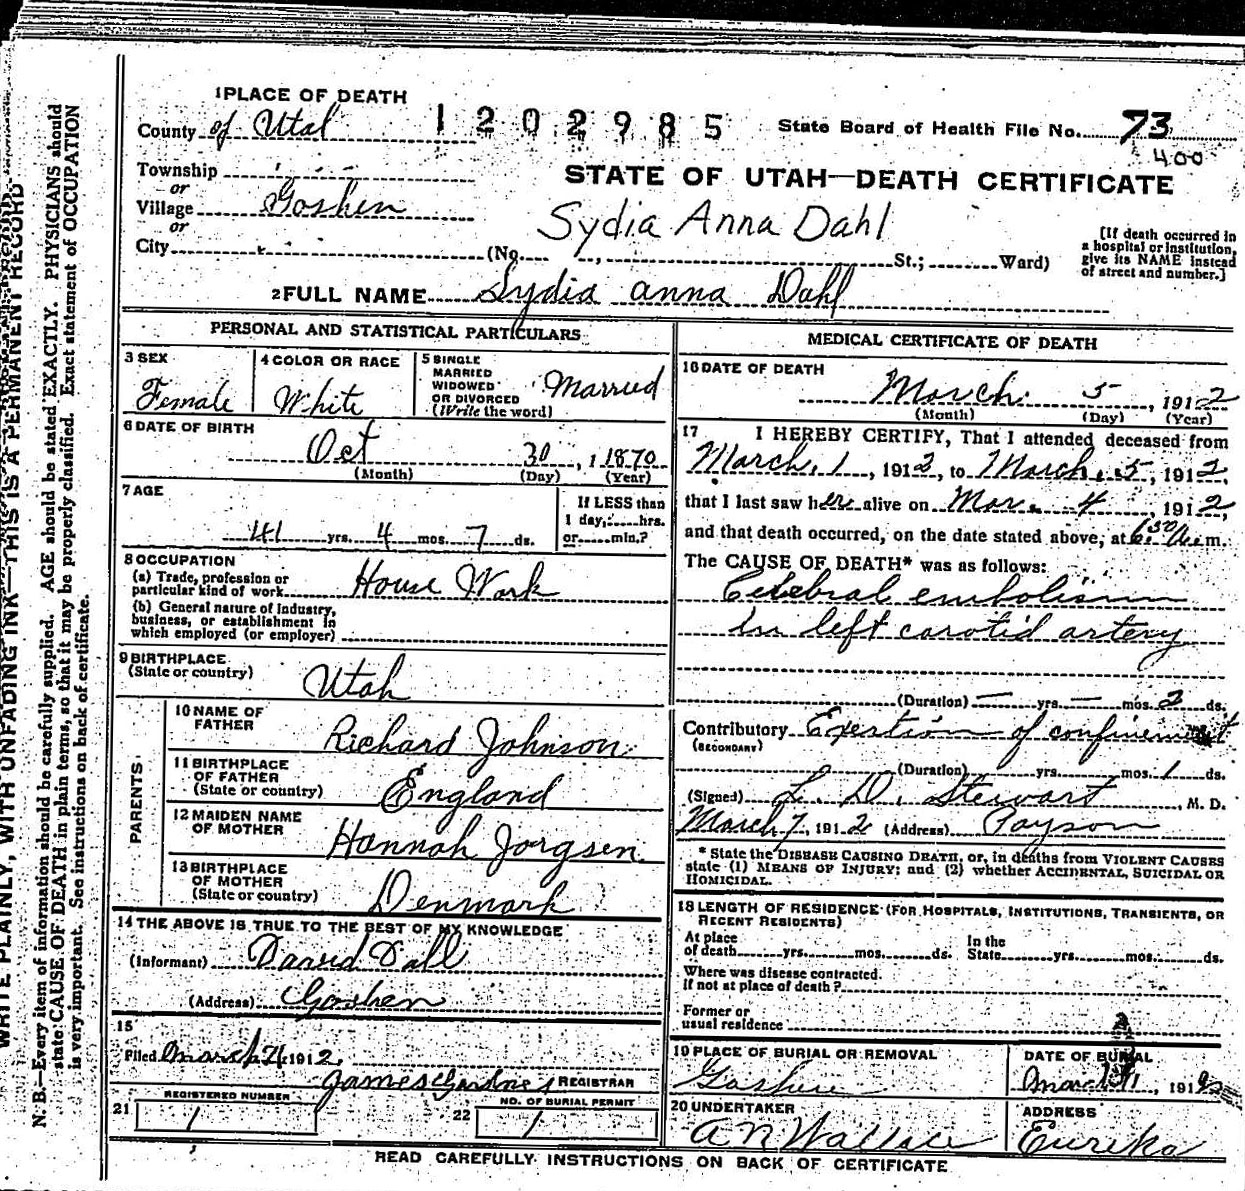 1 PLACE OF DEATH
County of Utah
1202985
State Board of Health File No. 73
400
Township
or
Village Goshen
or
City
STATE OF UTAH—DEATH CERTIFICATE
Sydia Anna Dahl
(No. , St.; Ward)
[If death occurred in
a hospital or institution,
give its NAME instead
of street and number.]
2 FULL NAME Sydia Anna Dahl
PERSONAL AND STATISTICAL PARTICULARS
3 SEX
Female
4 COLOR OR RACE
White
5 SINGLE
MARRIED
WIDOWED
OR DIVORCED
(Write the word)
Married
6 DATE OF BIRTH
Oct 30, 1 1870
(Month) (Day) (Year)
7 AGE
41 yrs. 4 mos. 7 ds.
If LESS than
1 day, hrs.
or min.?
8 OCCUPATION
(a) Trade, profession or
particular kind of work House Work
(b) General nature of Industry,
business, or establishment in
which employed (or employer)
9 BIRTHPLACE
(State or country)
Utah
PARENTS.
10 NAME OF
FATHER
Richard Johnson
11 BIRTHPLACE
OF FATHER
(State or country)
England
12 MAIDEN NAME
OF MOTHER
Hannah Jorgsen
13 BIRTHPLACE
OF MOTHER
(State or country)
Denmark
14 THE ABOVE IS TRUE TO THE BEST OF MY KNOWLEDGE
(Informant) David Dall
(Address) Goshen
15
Filed March 1912
James Gardner REGISTRAR
REGISTERED NUMBER
21 1
NO. OF BURIAL PERMIT
22 1
MEDICAL CERTIFICATE OF DEATH
16 DATE OF DEATH
March 5, 1912
(Month) (Day) (Year)
17 I HEREBY CERTIFY, That I attended deceased from
March, 1, 1912, to March, 5, 1912,
that I last saw her alive on Mar. 4, 1912,
and that death occurred, on the date stated above, at 6:30 A.m.
The CAUSE OF DEATH* was as follows:
Cerebral embolism
in left carotid artery
(Duration) — yrs. — mos. 2 ds.
Contributory Exertion of confinement
(SECONDARY)
(Duration) yrs. mos. 1 ds.
(Signed) L. D. Stewart, M. D.
March 7, 1912 (Address) Payson
* State the DISEASE CAUSING DEATH, or, in deaths from VIOLENT CAUSES
state (1) MEANS OF INJURY; and (2) whether ACCIDENTAL, SUICIDAL OR
HOMICIDAL.
18 LENGTH OF RESIDENCE (FOR HOSPITALS, INSTITUTIONS, TRANSIENTS, OR
RECENT RESIDENTS)
At place
of death yrs. mos. ds.
In the
State yrs. mos. ds.
Where was disease contracted.
if not at place of death?
Former or
usual residence
19 PLACE OF BURIAL OR REMOVAL
Goshen
DATE OF BURIAL
March, 1912
20 UNDERTAKER
A N Wallace
ADDRESS
Eureka
READ CAREFULLY INSTRUCTIONS ON BACK OF CERTIFICATE
WRITE PLAINLY, WITH UNFADING INK—THIS IS A PERMANENT RECORD
N. B.—Every item of information should be carefully supplied. AGE should be stated EXACTLY. PHYSICIANS should
state CAUSE OF DEATH in plain terms, so that it may be properly classified. Exact statement of OCCUPATION
is very important. See instructions on back of certificate.